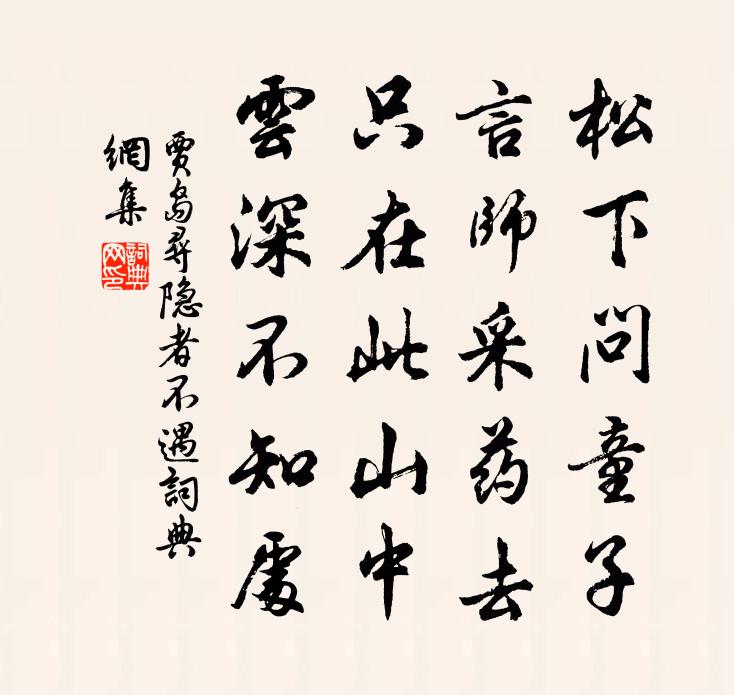 松下問童子
言師采药去
只在此山中
雲深不知處
賈島尋隐者不遇詞典
網集
詞典
网印